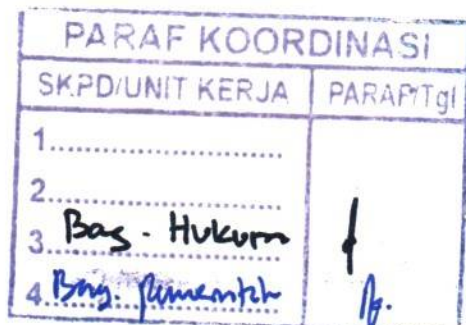 PARAF KOORDINASI
SKPD/UNIT KERJA PARAF/Tgl
1..............................
2..............................
3 Bag. Hukum
4 Bag. Pemerintah